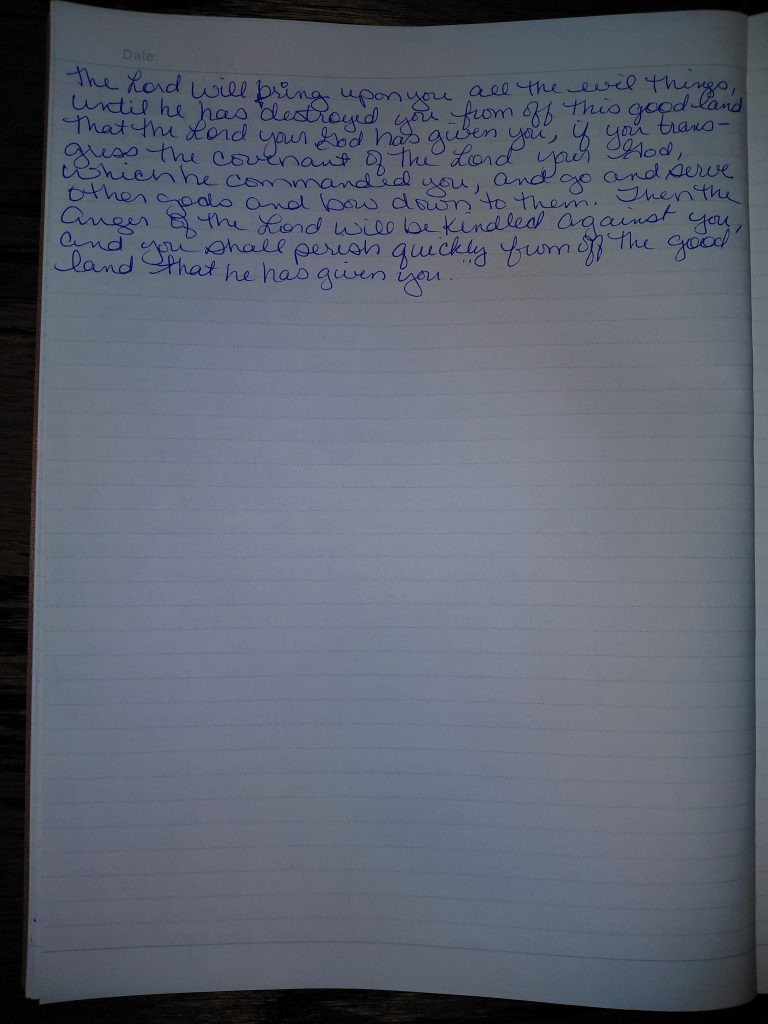 Date:
the Lord will bring upon you all the evil things,
until he has destroyed you from off this good land
that the Lord your God has given you, if you trans-
gress the covenant of the Lord your God,
which he commanded you, and go and serve
other gods and bow down to them. Then the
anger of the Lord will be kindled against you,
and you shall perish quickly from off the good
land that he has given you."